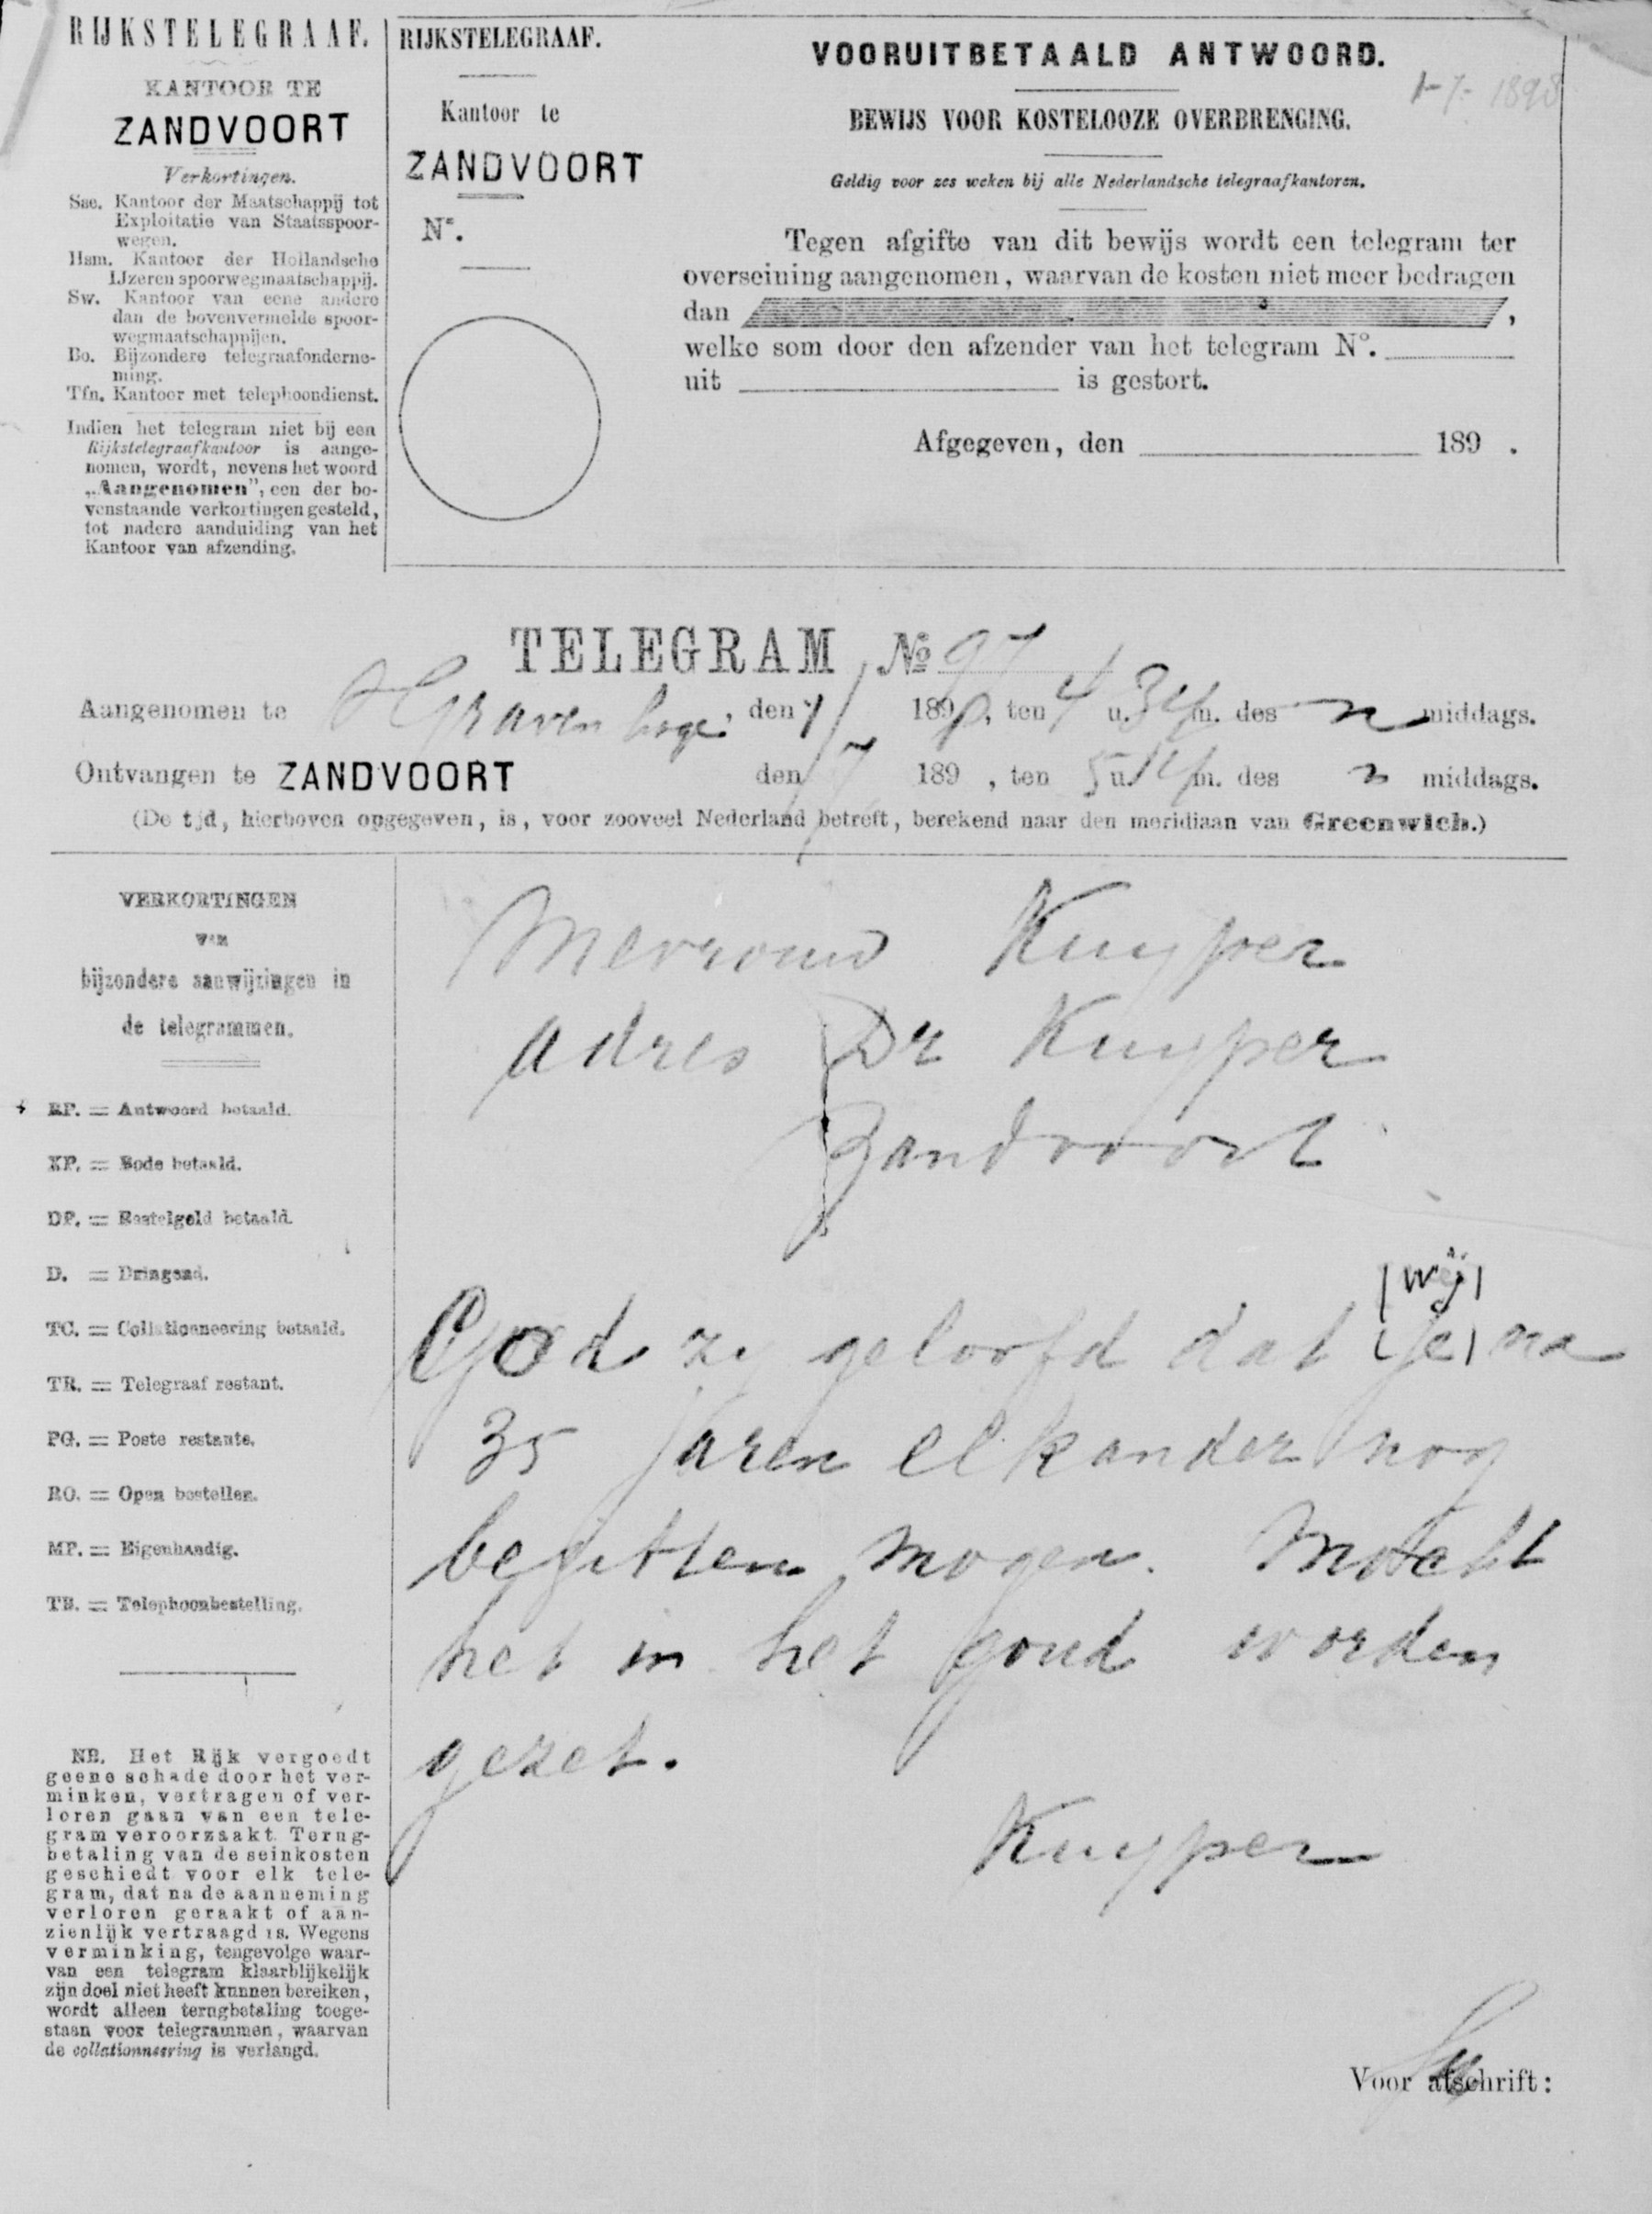 RIJKSTELEGRAAF.
KANTOOR TE
ZANDVOORT
Verkortingen.
Sse. Kantoor der Maatschappij tot
Exploitatie van Staatsspoor-
wegen.
Hsm. Kantoor der Hollandsche
IJzeren spoorwegmaatschappij.
Sw. Kantoor van eene andere
dan de bovenvermelde spoor-
wegmaatschappijen.
Bo. Bijzondere telegraafonderne-
ming.
Tfn. Kantoor met telephoondienst.
Indien het telegram niet bij een
Rijkstelegraafkantoor is aange-
nomen, wordt, nevens het woord
„Aangenomen”, een der bo-
venstaande verkortingen gesteld,
tot nadere aanduiding van het
Kantoor van afzending.
RIJKSTELEGRAAF.
Kantoor te
ZANDVOORT
N°.
VOORUITBETAALD ANTWOORD.
1-7-1898
BEWIJS VOOR KOSTELOOZE OVERBRENGING.
Geldig voor zes weken bij alle Nederlandsche telegraafkantoren.
Tegen afgifte van dit bewijs wordt een telegram ter
overseining aangenomen, waarvan de kosten niet meer bedragen
dan ,
welke som door den afzender van het telegram N°.
uit is gestort.
Afgegeven, den 189 .
TELEGRAM № 97
Aangenomen te s Gravenhage. den 1/7 1898, ten 4 u. 34 m. des n middags.
Ontvangen te ZANDVOORT den 1/7 189 , ten 5 u. 14 m. des n middags.
(De tijd, hierboven opgegeven, is, voor zooveel Nederland betreft, berekend naar den meridiaan van Greenwich.)
VERKORTINGEN
VAN
bijzondere aanwijzingen in
de telegrammen.
RP. = Antwoord betaald.
XP. = Bode betaald.
DP. = Bestelgeld betaald.
D. = Dringend.
TC. = Collationneering betaald.
TR. = Telegraaf restant.
PG. = Poste restante.
RO. = Open bestellen.
MP. = Eigenhandig.
TB. = Telephoonbestelling.
NB. Het Rijk vergoedt
geene schade door het ver-
minken, vertragen of ver-
loren gaan van een tele-
gram veroorzaakt. Terug-
betaling van de seinkosten
geschiedt voor elk tele-
gram, dat na de aanneming
verloren geraakt of aan-
zienlijk vertraagd is. Wegens
verminking, tengevolge waar-
van een telegram klaarblijkelijk
zijn doel niet heeft kunnen bereiken,
wordt alleen terugbetaling toege-
staan voor telegrammen, waarvan
de collationneering is verlangd.
Mevrouw Kuyper
adres Dr Kuyper
Zandvoort
(wij)
God zy geloofd dat (je) na
35 Jaren elkander nog
bezitten mogen. Mocht
het in het goud worden
gezet.
Kuyper
Voor afschrift: